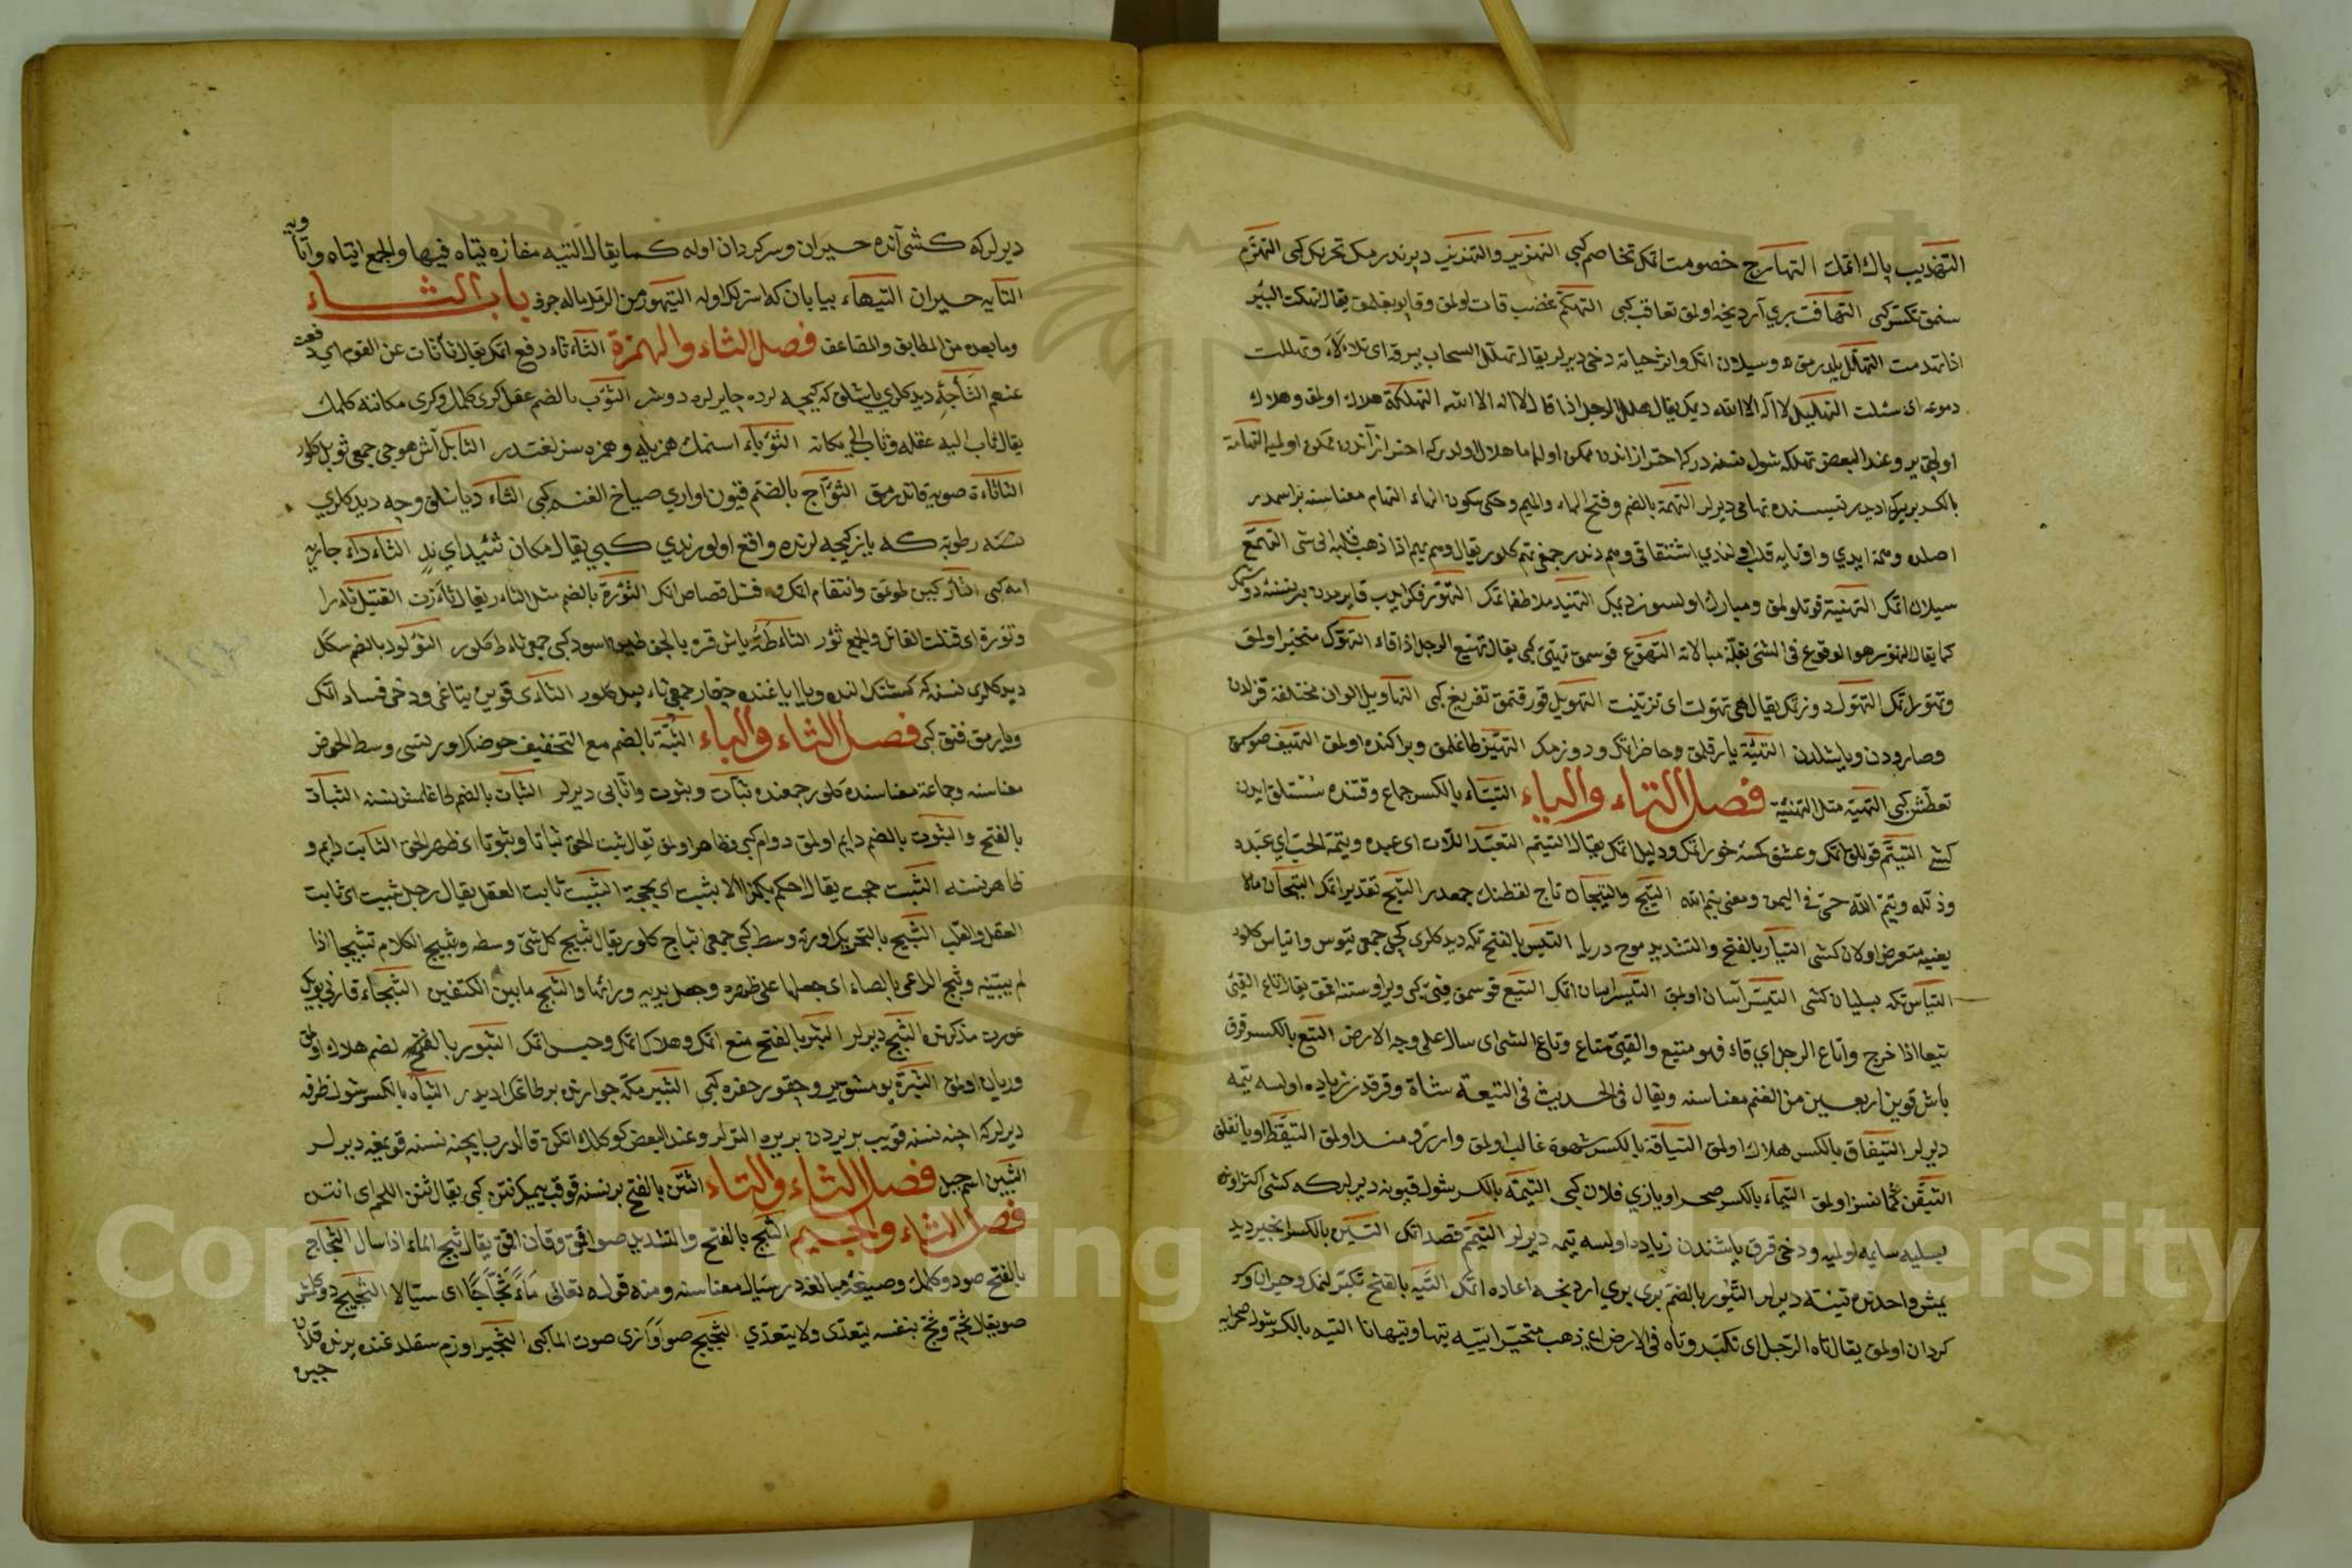 التهذيب پاك اتمك التهارج خصومت اتمك تخاصم كبي التهزيز والتهزيز دپرندرمك تحريك كبي التهزم
سنمق تكسر كبي التهافت بري آردنجه اولمق تعاقب كبي التهكم غضب قات اولمق وقاپو يقلمق يقال تهكت البئر
اذا تهدمت التهلل يلدرمق و سيلان اتمك وانر حياته دخي ديرلر يقال تهلل السحاب ببرقه اى تلألأ وتهللت
دموعه اى سئلت التهليل لا اله الا الله ديمك يقال هلل الرجل اذا قال لا اله الا الله التهلكة هلاك اولمق وهلاك
اولجق ير وعند البعض تهلكه شول نسنه دركه احتراز اندن ممكن اوله اما هلاك اولدركه احتراز آندن ممكن اولميه التهامة
بالكسر بر يرك اديدر نسبتنده تهامي ديرلر التهمة بالضم وفتح الهاء والميم وحكى سكون الهاء التهام معناسنه براسمدر
اصلده وهمة ايدي واوتايه قلب اولندي اشتقاقي وهم دندر جمعي تهم كلور يقال وهم يهم اذا ذهب قلبه الى شئ التهمع
سيلان اتمك التهنية قوتلو اولمق ومبارك اولسون ديمك التهنيد ملاطفه اتمك التهور فكر ايدب قايرمدن بر نسنيه دوشمك
كما يقال التهور هو الوقوع في الشئ بقلة مبالاته التهوع قوسمق تهيئ كبي يقال تهوع الرجل اذا قاء التهوك متحير اولمق
وتهور اتمك التهول دوزنمك يقال هي تهولت اى تزينت التهويل قورقتمق تفزيع كبي التهاويل الوان مختلفه قزلدن
وصارودن ويشلدن التهيئة يارقلمق وحاضر اتمك ودوزمك التهيز طاغلمق وپراكنده اولمق التهيف صوسمق
تعطش كبي التهية مثل التهنئية فصل التاء والياء التيتاء بالكسر جماع وقتنده سستلق ايدن
كشى التيتم قوللق اتمك وعشق كسنه خور اتمك وذليل اتمك يقال التيتم التعبد اللات اى عبده ويتمه الحب اي عبده
وذلّله وتيم الله حيّ في اليمن ومعنى تيم الله التيج والتيجان تاج لفظنك جمعدر التيح تقدير اتمك التيجان مالا
يعنيه متعرض اولان كشى التيار بالفتح والتشديد موج دريا التيس بالفتح تكه ديدكلري كچي جمعي تيوس واتياس كلور
التياس تكه بسليان كشى التيسر آسان اولمق التيسير اسان اتمك التيع قوسمق قئ كبي ويرى اوستنه اقمق يقال تاع القئ
تيعا اذا خرج واتاع الرجل اي قاء فهو متيع والقئ متاع وتاع الشئ اى سال على وجه الارض التيع بالكسر قرق
باش قوين اربعين من الغنم معناسنه ويقال في الحديث في التيعة شاة وقرقدن زياده اولسه تيمه
ديرلر التيفاق بالكسر هلاك اولمق التياقة بالكسر شهوة غالب اولمق وارزومند اولمق التيقظ اويانقلق
التيقن كمانسز اولمق التيماء بالكسر صحرا ويازي فلان كبي التيمة بالكسر شول قيونه ديرلركه كشى اكثر اونى
بسليه سايمه اولميه ودخي قرق باشندن زياده اولسه تيمه ديرلر التيمم قصد اتمك التين بالكسر انجير ديد
يمش واحدنه تينه ديرلر التيور بالضم برى بري اردنجه اعاده اتمك التيه بالفتح تكبر لنمك وحيران وسر
كردان اولمق يقال تاه الرجل اى تكبر وتاه في الارض اي ذهب متحيرا يتيه تيها وتيهانا التيه بالكسر شول صحرايه
ديرلركه كشى آنده حيران وسركردان اوله كما يقال التيه مفازة يتاه فيها والجمع اتياه واتاويه
التايه حيران التيهاء بيابان كه استركلى اوله التيهور من الرمل ماله جرف باب الثاء
وما بعده من المطابق والمضاعف فصل الثاء والهمزة الثأثاء دفع اتمك يقال ثأثأت عن القوم اي دفعت
عنهم الثأجة ديدكلري ياشلق كه كيجه لرده چايرلره دوشر الثوب بالضم عقل كرى كلمك وكرى مكاننه كلمك
يقال ثاب اليه عقله وثاب الى مكانه الثؤباء اسنمك همزيله وهمزه سز لغتدر الثابل آش هوجي جمعي ثوبل كلور
الثاثاءة صويه قاندرمق الثؤاج بالضم قيون اوازي صياخ الغنم كبي الثاء ديا شلق وجه ديدكلري
نسنه رطوبة كه يازكيجه لرنده واقع اولور ندي كبي يقال مكان ثئيد اي ندٍ الثاداء جاريه
امه كبي الثأر كين طوتمق وانتقام اتمك و قتل قصاص اتمك الثؤرة بالضم مثل الثار يقال ثأرت القتيل ثارا
وثؤرة اى قتلت القاتل والجمع ثؤر الثاطة باش قره بالجق طين اسود كبي جمعي ثاط كلور الثؤلول بالضم سكل
ديدكلري نسنه كه كشنك الندن ويا اياغنده چقار جمعي ثاليل كلور الثأى قوين يتاغي ودخي فساد اتمك
ويارمق فتق كبي فصل الثاء والباء الثبة بالضم مع التخفيف حوضك اورتسى وسط الحوض
معناسنه وجماعة معناسنده كلور جمعنده ثبات وثبوت واثابى ديرلر الثبات بالضم طاغلمش نسنه الثبات
بالفتح والثبوت بالضم دايم اولمق دوام كبي وظاهر اولمق يقال ثبت الحق ثباتا وثبوتا اى ظهر الحق الثابت دايم و
ظاهر نسنه الثبت حجت يقال لا احكم بكذا الا بثبت اى بحجة الثبيت ثابت العقل يقال رجل ثبيت اى ثابت
العقل والقلب الثبج بالتحريك اورته وسط كبي جمعي اثباج كلور يقال ثبج كل شئ وسطه وثبج الكلام تثبيجا اذا
لم يبينه وثبج الراعي بالعصا اى جعلها على ظهره وجعل يديه ورائها والثبج ما بين الكتفين الثبجاء قارني بويك
عورت مذكرنه اثبج ديرلر الثبر بالفتح منع اتمك وهلاك اتمك وحبس اتمك الثبور بالضم هلاك اولمق
وزيان اولمق الثبرة يومشق ير وچقور حفره كبي الثبير مكه جوارنده بر طاغك اديدر الثبان بالكسر شول ظرفه
ديرلركه اچنه نسنه قويب بر يردن بر يره التلر وعند البعض كوكلك اتكن قالدرب ايچنه نسنه قويمغه ديرلر
الثبين اسم جبل فصل الثاء والتاء الثتن بالفتح بر نسنه قوقب ييمك نتن كبي يقال ثتن اللحم اى انتن
فصل الثاء والجيم الثج بالفتح والتشديد صو اقمق وقان اقمق يقال ثج الماء اذا سال الثجاج
بالفتح صو دوكلمك وصيغه مبالغه در سيال معناسنه ومنه قوله تعالى ماءً ثجاجًا اى سيّالا الثجيج دوكلش
صو يقال ثجّ وثج بنفسه يتعدى ولا يتعدى الثجيج صو اوازى صوت الماء كبي الثجير اوزم سقلدغنده يرنده قلان
جبره